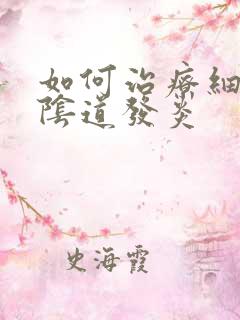 如何治療細
陰道發炎
史海霞